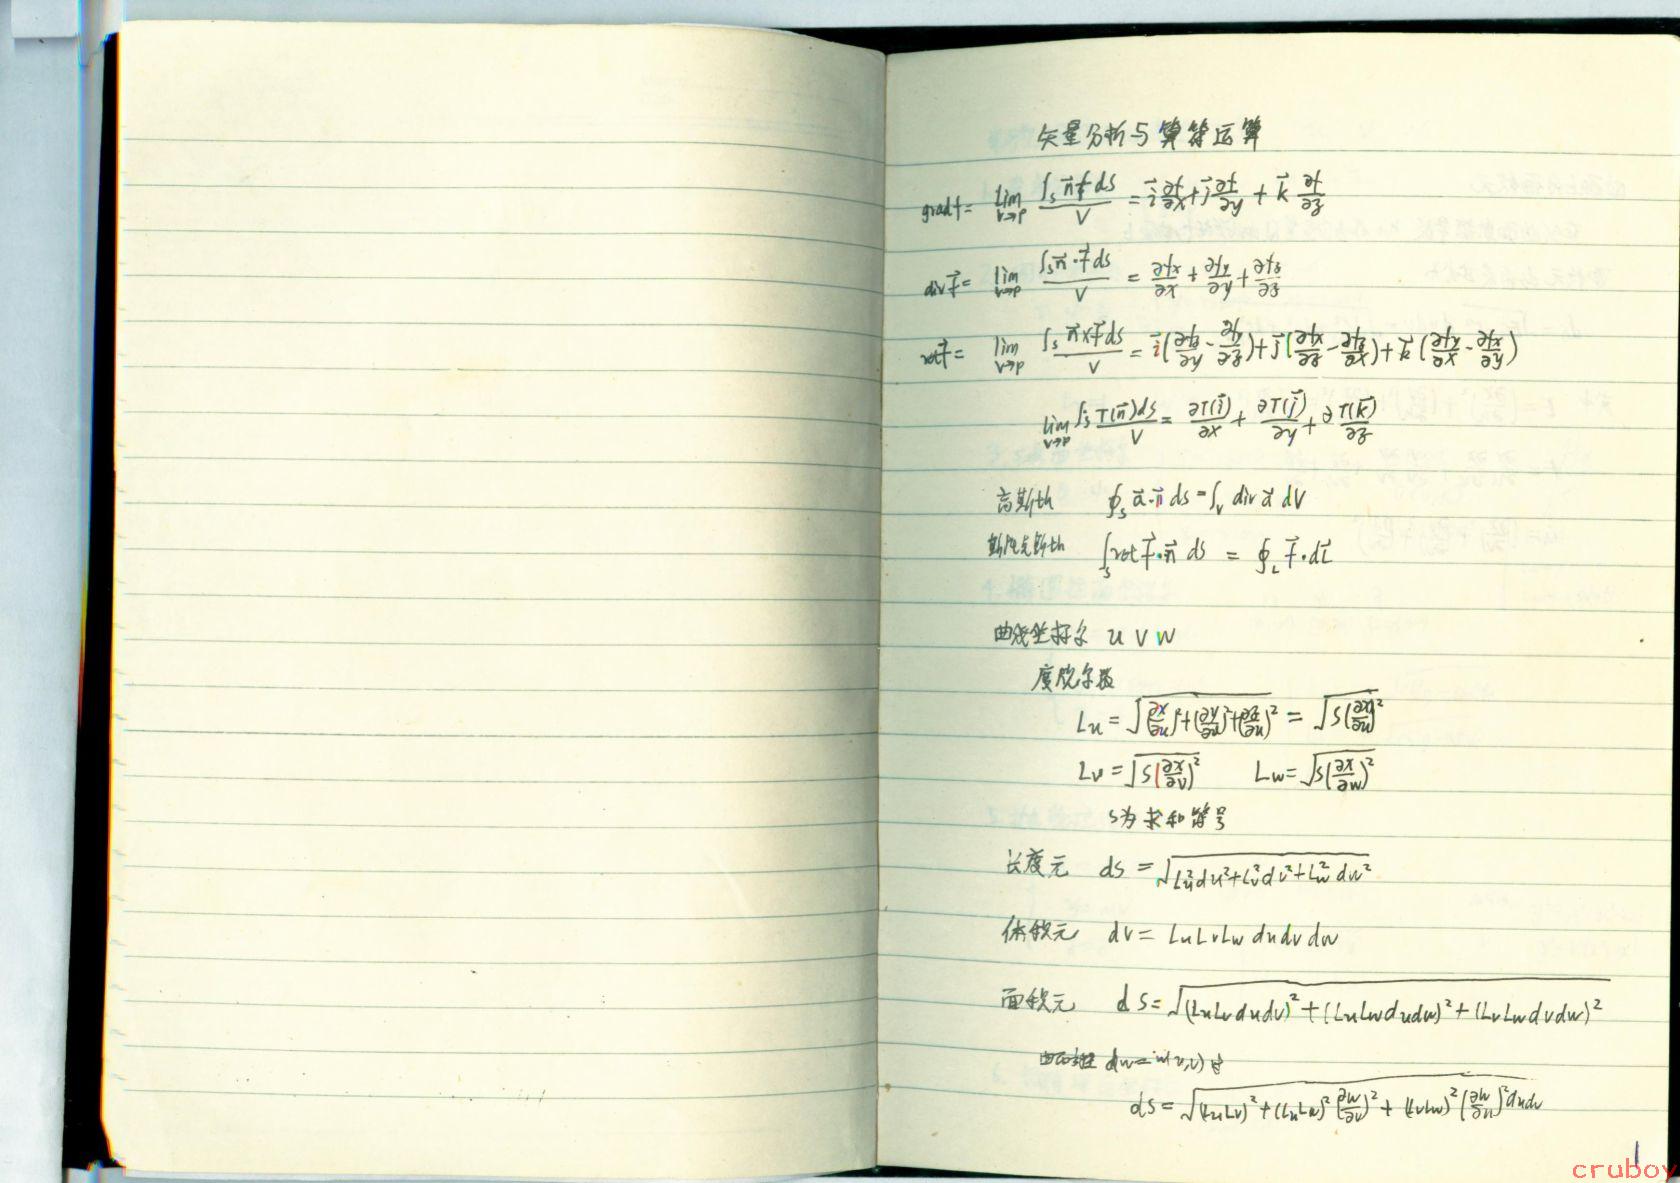 矢量分析与算符运算
grad f = lim_{V→P} ∫_S n⃗ f ds / V = i⃗ ∂f/∂x + j⃗ ∂f/∂y + k⃗ ∂f/∂z
div f⃗ = lim_{V→P} ∫_S n⃗·f⃗ ds / V = ∂fx/∂x + ∂fy/∂y + ∂fz/∂z
rot f⃗ = lim_{V→P} ∫_S n⃗×f⃗ ds / V = i⃗(∂fz/∂y - ∂fy/∂z) + j⃗(∂fx/∂z - ∂fz/∂x) + k⃗(∂fy/∂x - ∂fx/∂y)
lim_{V→P} ∫_S T(n⃗) ds / V = ∂T(i⃗)/∂x + ∂T(j⃗)/∂y + ∂T(k⃗)/∂z
高斯th ∮_S a⃗·n⃗ ds = ∫_V div a⃗ dV
斯托克斯th ∫_S rot f⃗·n⃗ ds = ∮_L f⃗·dL⃗
曲线坐标系 u v w
度规系数
Lu = √((∂x/∂u)²+(∂y/∂u)²+(∂z/∂u)²) = √(S(∂x/∂u)²)
Lv = √(S(∂x/∂v)²) Lw = √(S(∂x/∂w)²)
S为求和符号
长度元 ds = √(Lu²du²+Lv²dv²+Lw²dw²)
体积元 dv = LuLvLw du dv dw
面积元 ds = √((LuLv du dv)² + (LuLw du dw)² + (LvLw dv dw)²)
dw = w(u,v) 时
ds = √((LuLv)² + (LuLw)²(∂w/∂v)² + (LvLw)²(∂w/∂u)²) du dv
1
cruboy